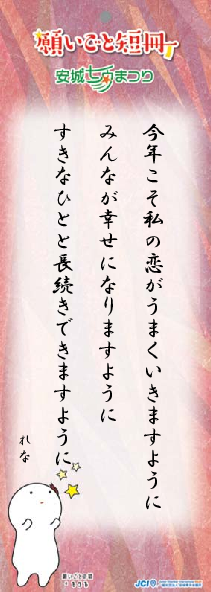 願いごと短冊
安城七夕まつり
今年こそ私の恋がうまくいきますように
みんなが幸せになりますように
すきなひとと長続きできますように
れな
JCI